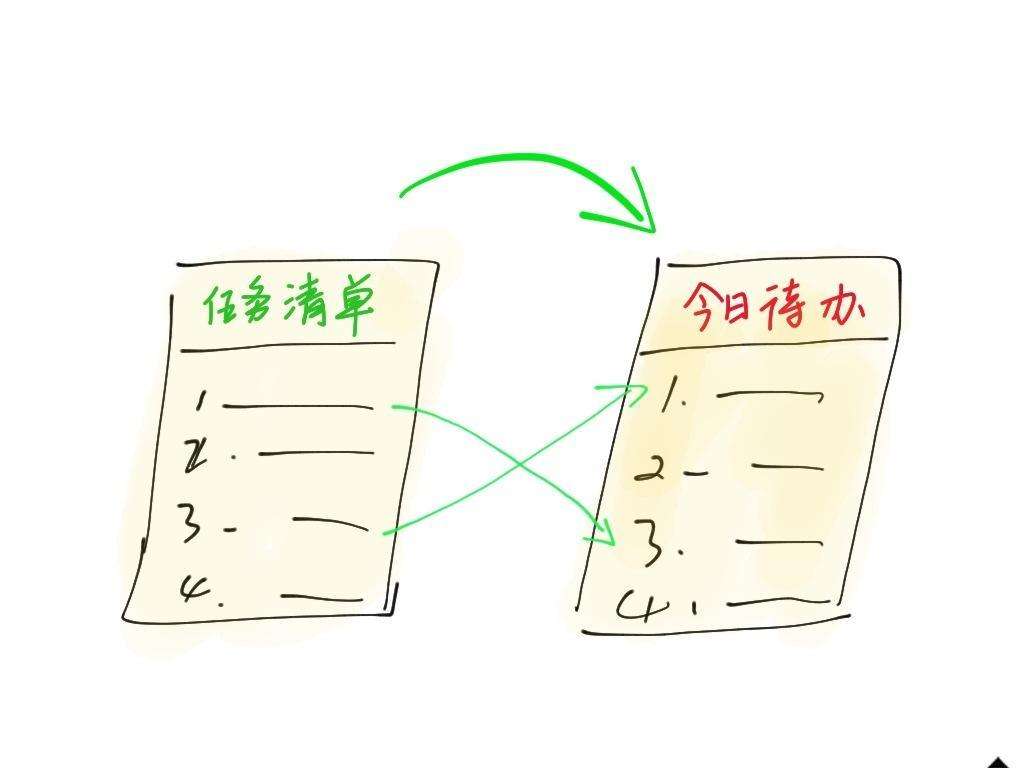 任务清单
1
2.
3-
4.
今日待办
1.
2-
3.
4.